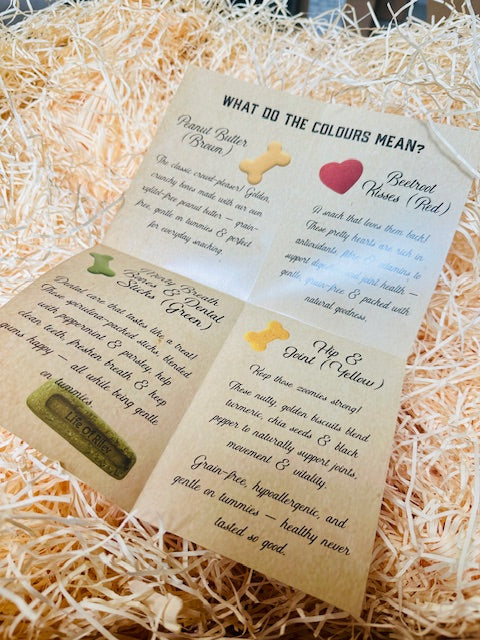 WHAT DO THE COLOURS MEAN?
Peanut Butter
(Brown)
The classic crowd-pleaser! Golden,
crunchy bones made with our own
xylitol-free peanut butter — grain-
free, gentle on tummies & perfect
for everyday snacking.
Beetroot
Kisses (Red)
A snack that loves them back!
These pretty hearts are rich in
antioxidants, fibre & vitamins to
support digestion and joint health —
gentle, grain-free & packed with
natural goodness.
Breath
Bones & Dental
Sticks (Green)
Dental care that tastes like a treat!
These spirulina-packed sticks, blended
with peppermint & parsley, help
clean teeth, freshen breath & keep
gums happy — all while being gentle
on tummies.
Life Of Riley
Hip &
Joint (Yellow)
Keep those zoomies strong!
These nutty, golden biscuits blend
turmeric, chia seeds & black
pepper to naturally support joints,
movement & vitality.
Grain-free, hypoallergenic, and
gentle on tummies — healthy never
tasted so good.